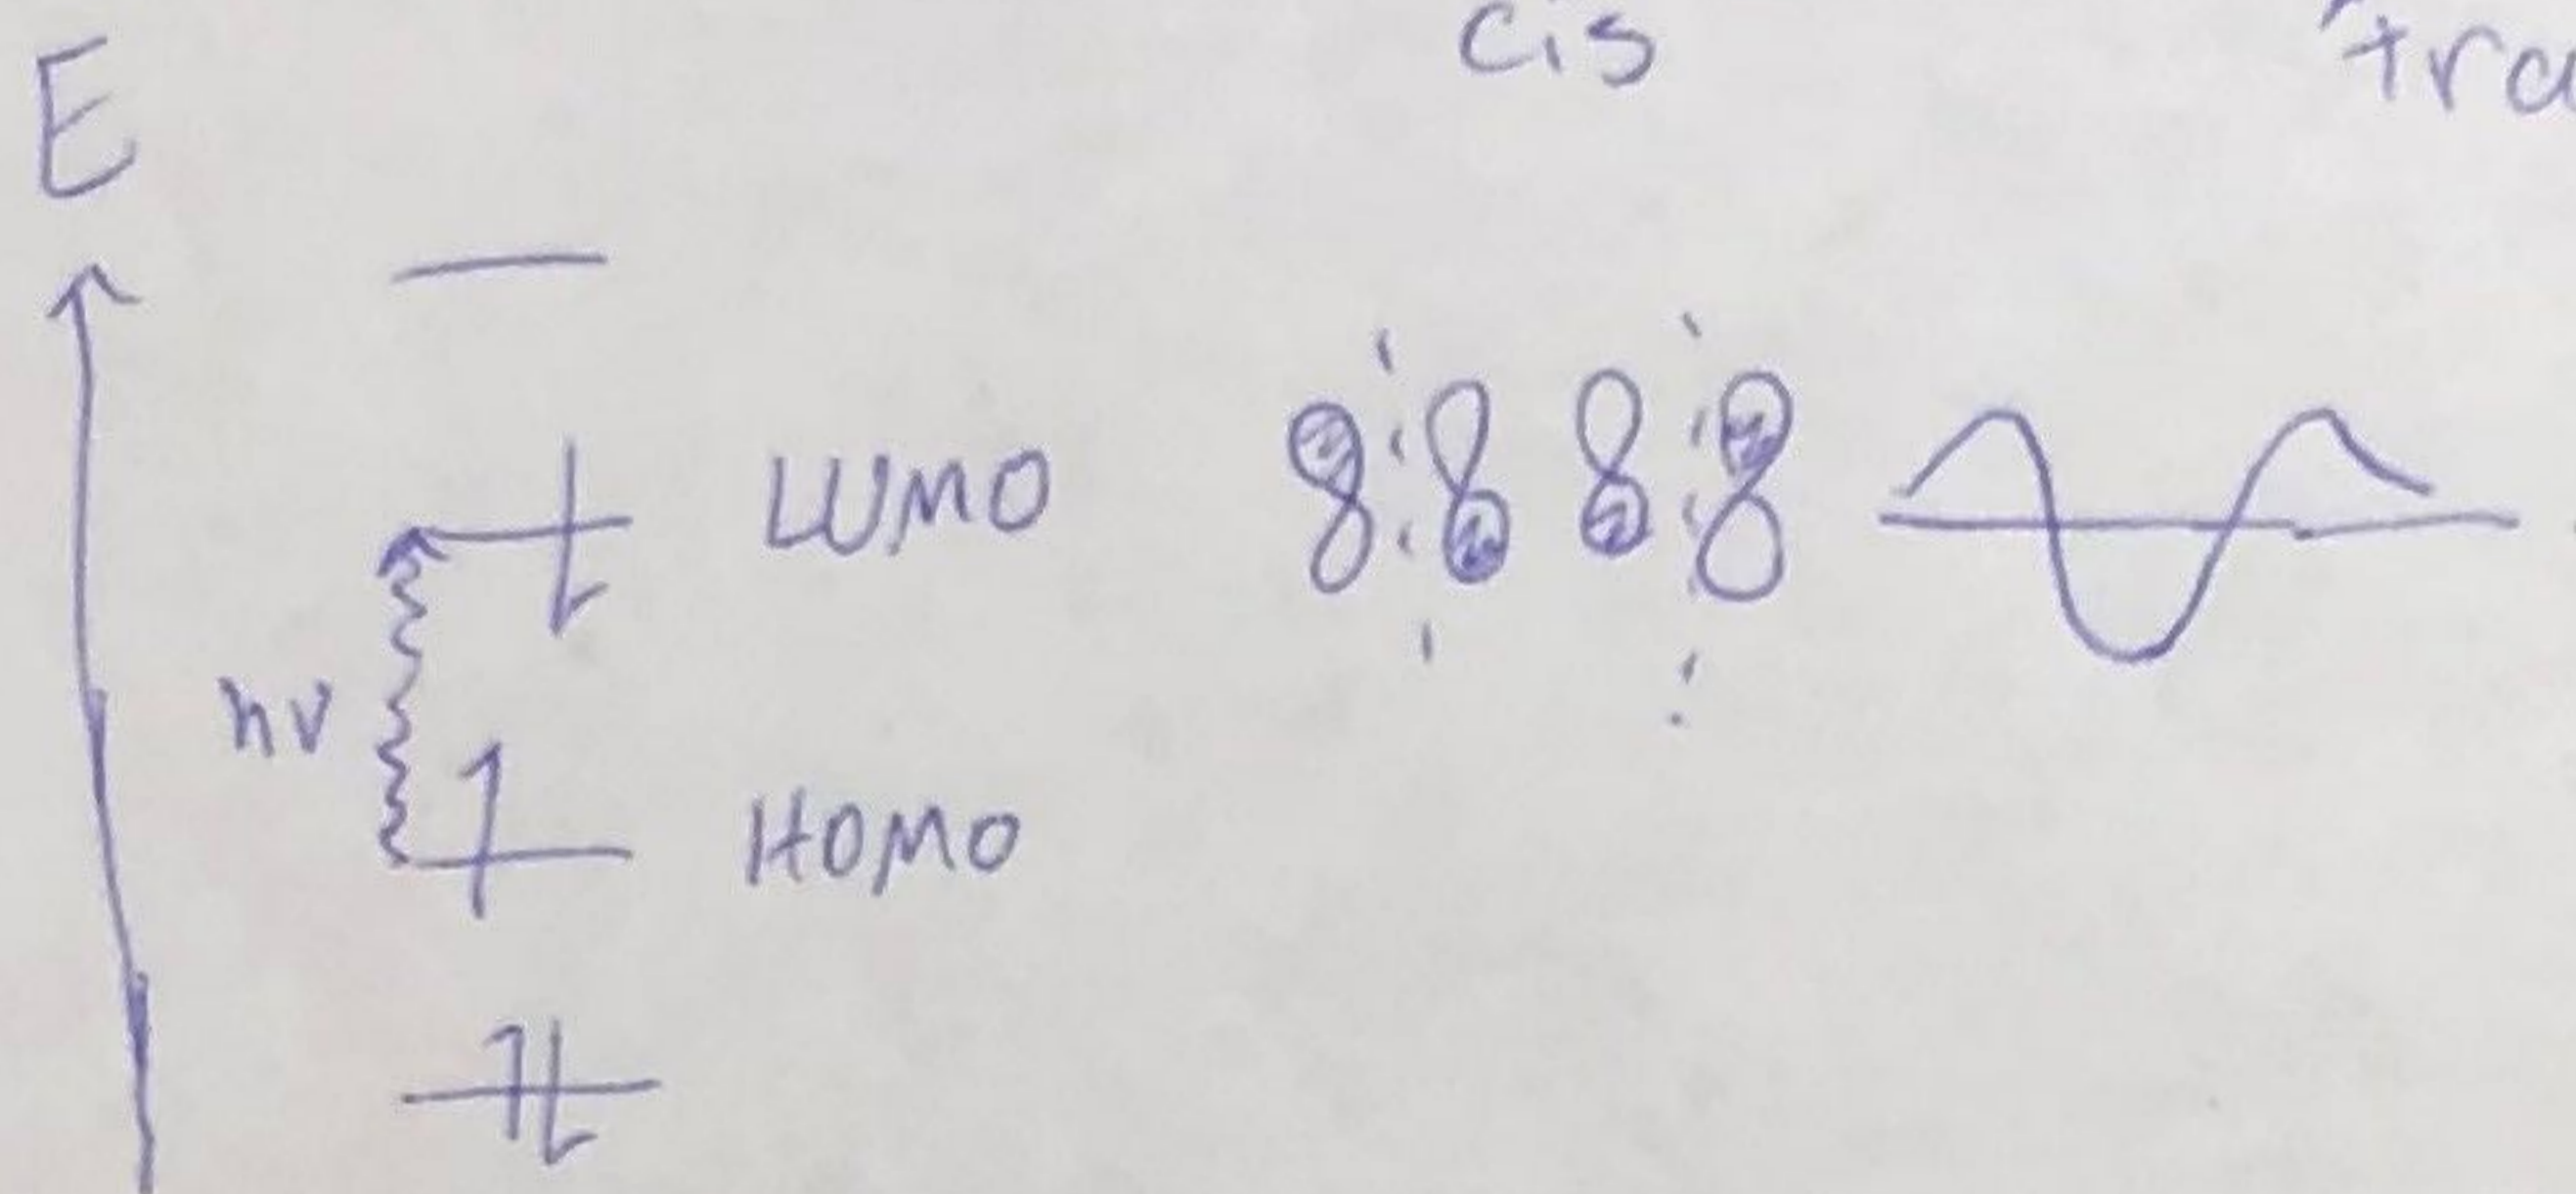 cis
tra
E
LUMO
hν
HOMO